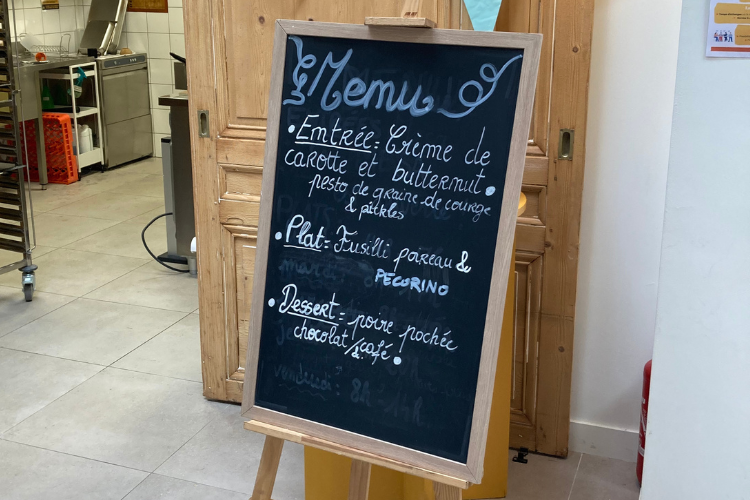 Menu
• Entrée = Crème de
carotte et butternut •
pesto de graine de courge
& pickles
• Plat = Fusilli poireau &
PECORINO
• Dessert = poire pochée
chocolat / café •
vendredi : 8h - 14h